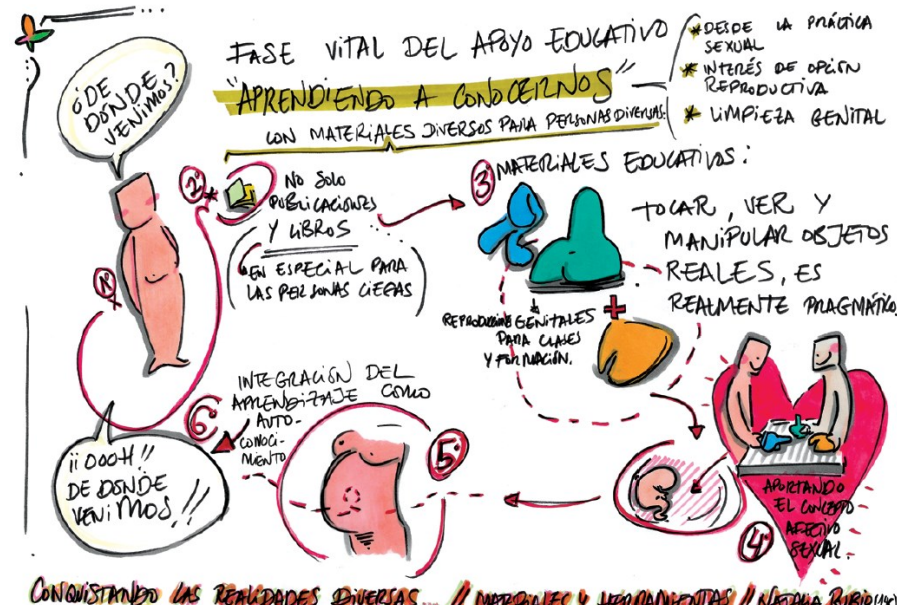 FASE VITAL DEL APOYO EDUCATIVO
"APRENDIENDO A CONOCERNOS"
CON MATERIALES DIVERSOS PARA PERSONAS DIVERSAS:
* DESDE LA PRÁCTICA
SEXUAL
* INTERÉS DE OPCIÓN
REPRODUCTIVA
* LIMPIEZA GENITAL
¿DE
DÓNDE
VENIMOS?
1*
2*
NO SOLO
PUBLICACIONES
Y LIBROS
(EN ESPECIAL PARA
LAS PERSONAS CIEGAS)
3. MATERIALES EDUCATIVOS:
TOCAR, VER Y
MANIPULAR OBJETOS
REALES, ES
REALMENTE PRAGMÁTICO
GENITALES
PARA CLASES
Y FORMACIÓN.
4.
APORTANDO
EL CONCEPTO
AFECTIVO
SEXUAL.
5.
6.
INTEGRACIÓN DEL
APRENDIZAJE COMO
AUTO-
CONOCI-
MIENTO
¡¡OOOH!!
DE DONDE
VENIMOS!!
CONQUISTANDO LAS REALIDADES DIVERSAS... // Y HERRAMIENTAS // NATALIA RUBIO